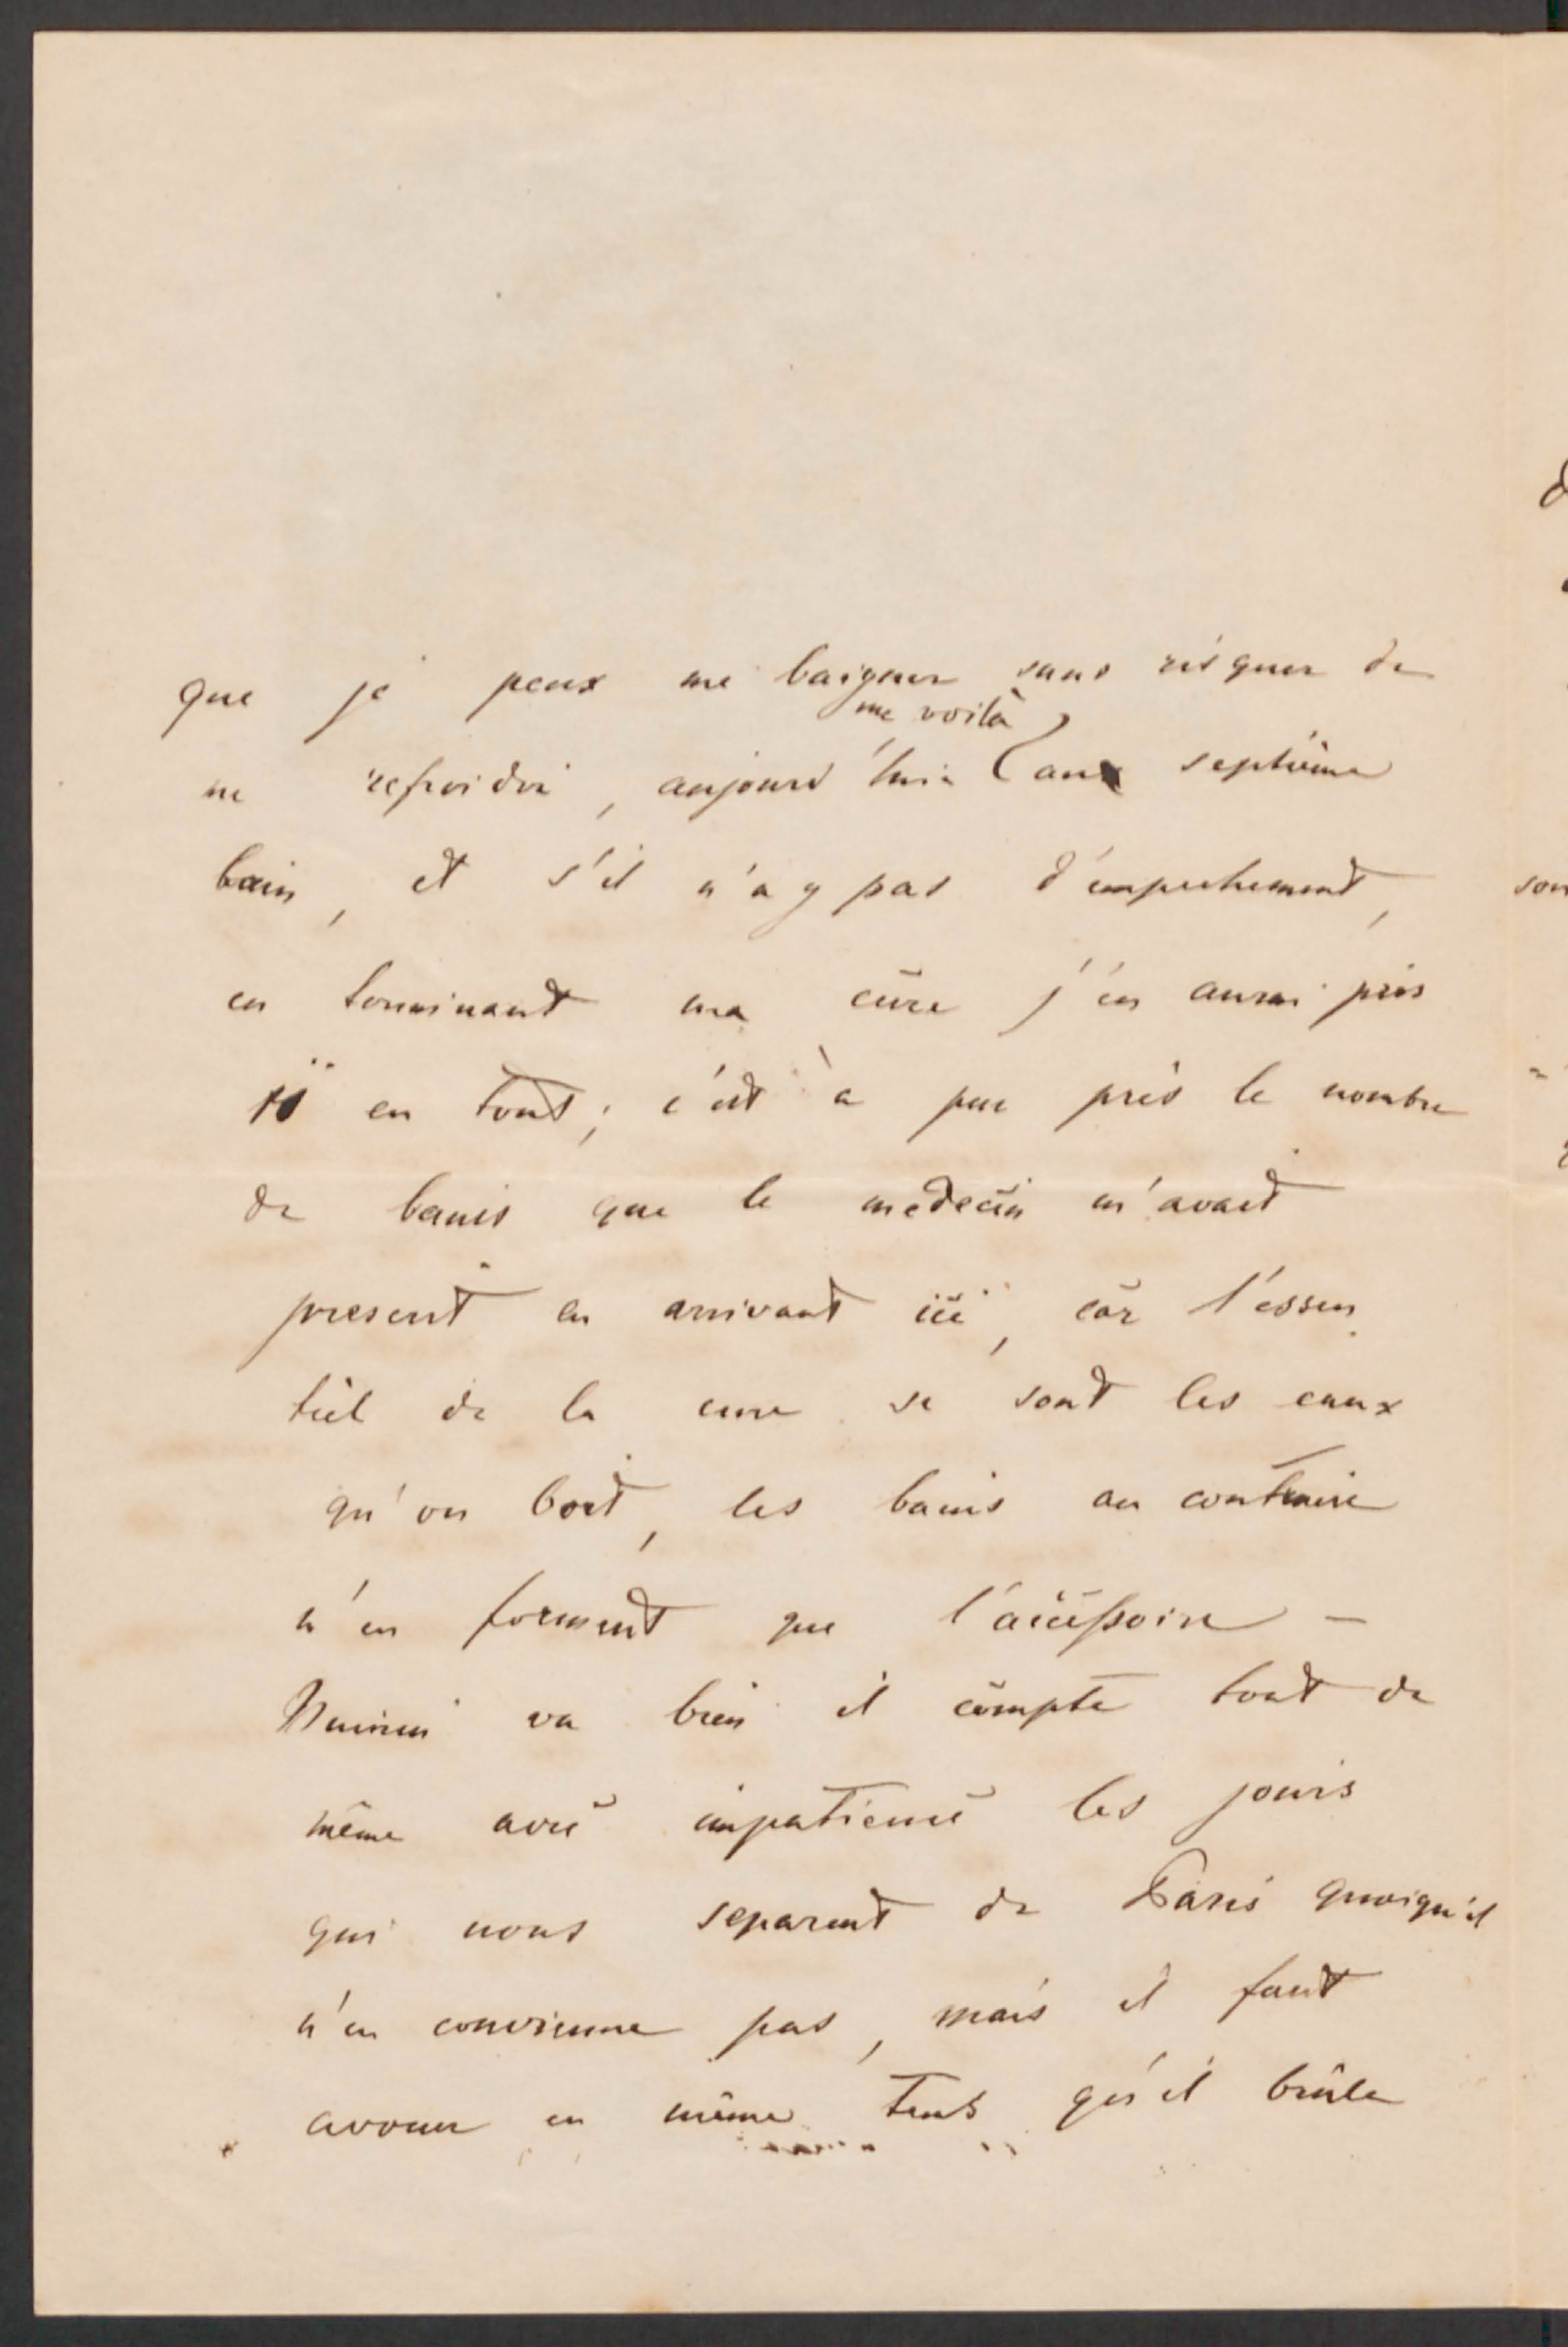 que je peux me baigner sans risquer de
me voilà
me refroidir, aujourd'hui aux septième
bain, et s'il n'a y pas d'empechement,
en terminant ma cure j'en aurai pris
en tout; c'est à peu près le nombre
de bains que le medecin m'avait
prescrit en arrivant ici, car l'essen
tiel de la cure se sont les eaux
qu'on boit, les bains au contraire
n'en forment que l'accessoire –
va bien il compte tout de
même avec impatience les jours
qui nous separent de Paris quoiqu'il
n'en convienne pas, mais il faut
avouer en même tems qu'il brûle
son